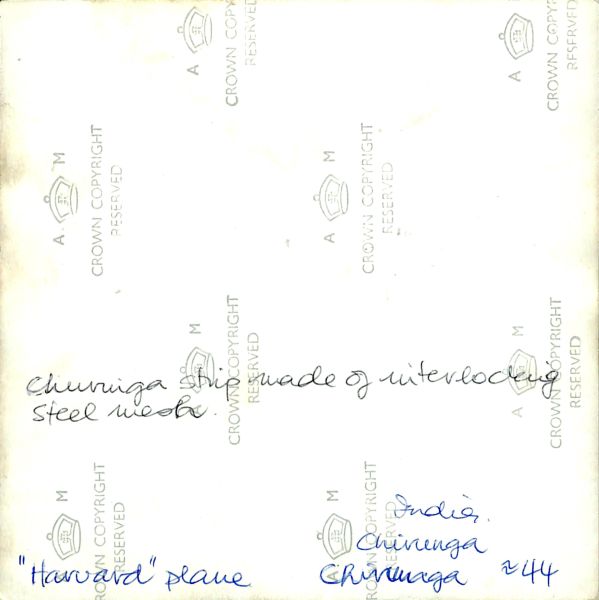 A
CROWN COPYRIGHT
RESERVED
A
CROWN COPYRIGHT
RESERVED
A M
CROWN COPYRIGHT
RESERVED
A M
CROWN COPYRIGHT
RESERVED
A M
CROWN COPYRIGHT
RESERVED
A M
CROWN COPYRIGHT
RESERVED
Churinga strip made of interlocking
steel mesh.
M
CROWN COPYRIGHT
RESERVED
M
CROWN COPYRIGHT
RESERVED
India.
Chirunga
"Harvard" plane
Chirunaga ≈44